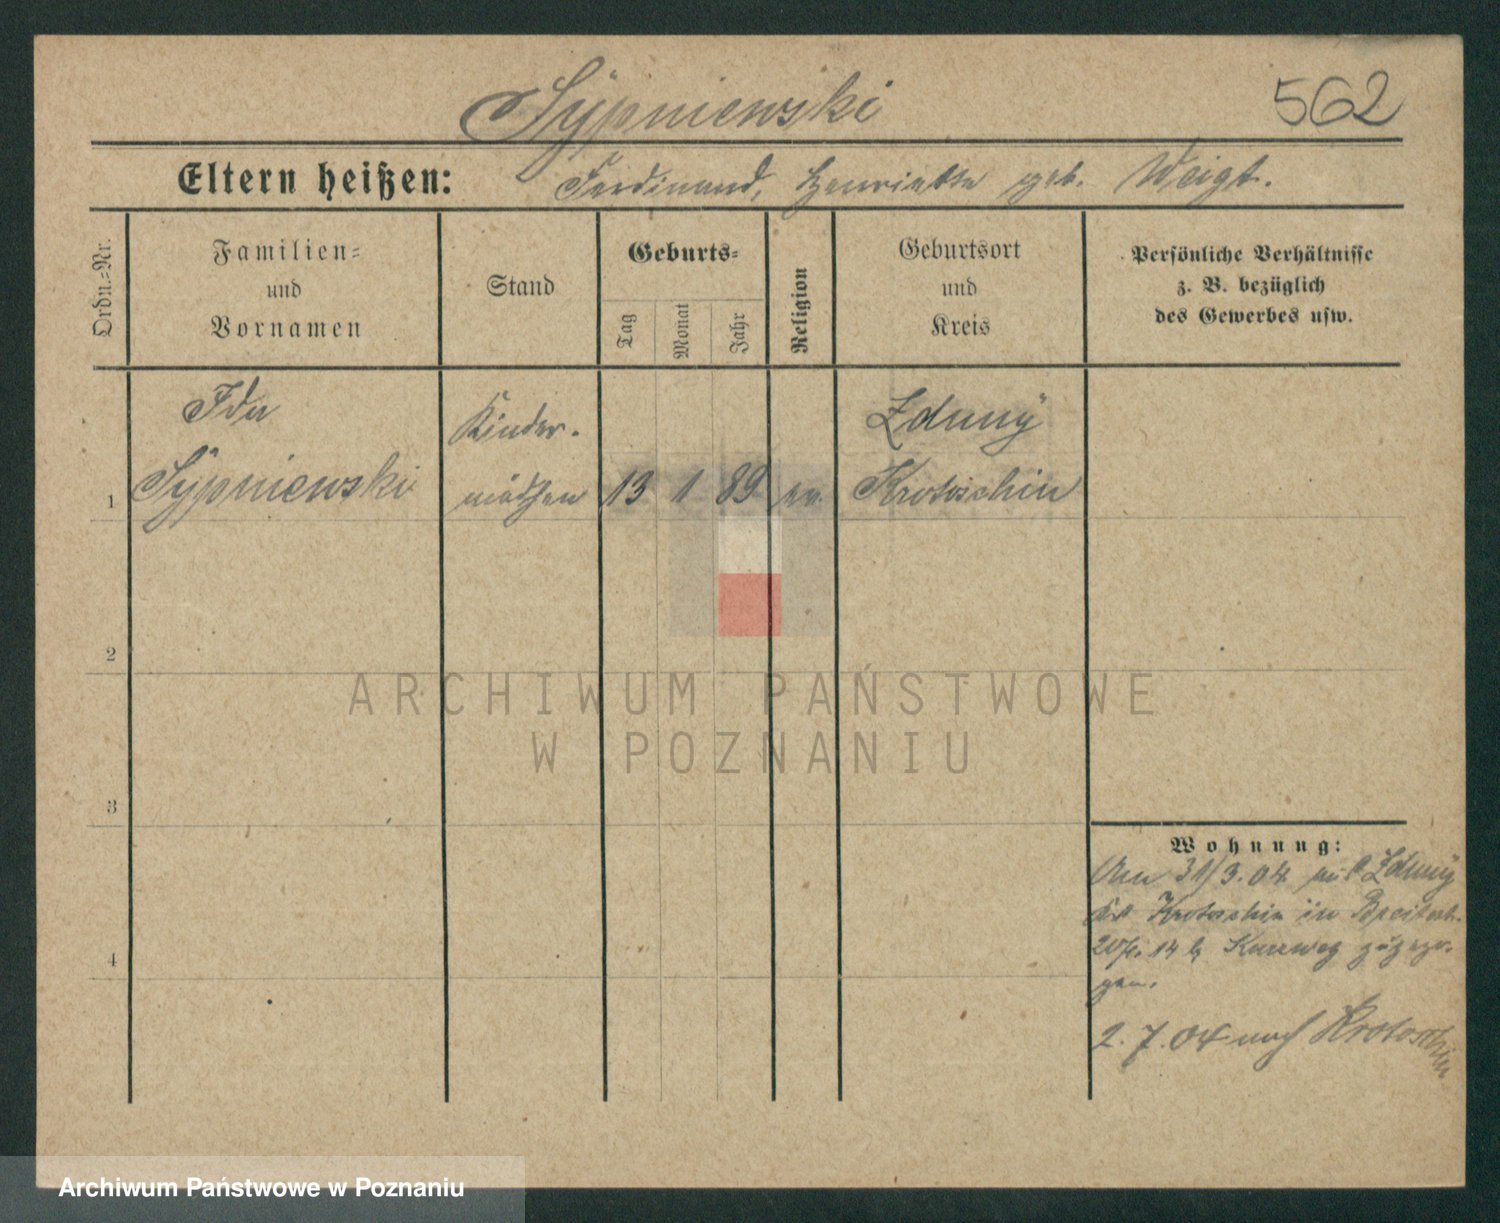 Sÿpniewski
562
Eltern heißen: Ferdinand, Henriette geb. Weigt.
Ordn.-Nr.
Familien-
und
Vornamen
Stand
Geburts-
Tag
Monat
Jahr
Religion
Geburtsort
und
Kreis
Persönliche Verhältnisse
z. B. bezüglich
des Gewerbes usw.
Ida
Kinder-
Zdunÿ
1 Sÿpniewski mädchen 13 1 89 ev. Krotoschin
2
ARCHIWUM PAŃSTWOWE
W POZNANIU
3
Wohnung:
Am 31/3.04 aus Zdunÿ
Krotoschin in
14 b zugezo-
gen.
4
2. 7. 04 nach Krotoschin
Archiwum Państwowe w Poznaniu